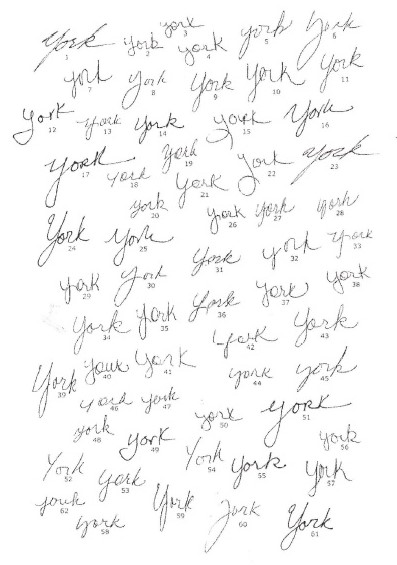 York york york york york York
1 2 3 4 5 6
york york York York york
7 8 9 10 11
york york york york York
12 13 14 15 16
york york york york york york york
17 18 19 20 21 22 23
York York york york york
24 25 26 27 28
york York York york york
29 30 31 32 33
york york york york york
34 35 36 37 38
York york york york york york york
39 40 41 42 43 44 45
york york york york york york
46 47 48 49 50 51
York york York york york York
52 53 54 55 56 57
york York York York york
58 59 60 61 62